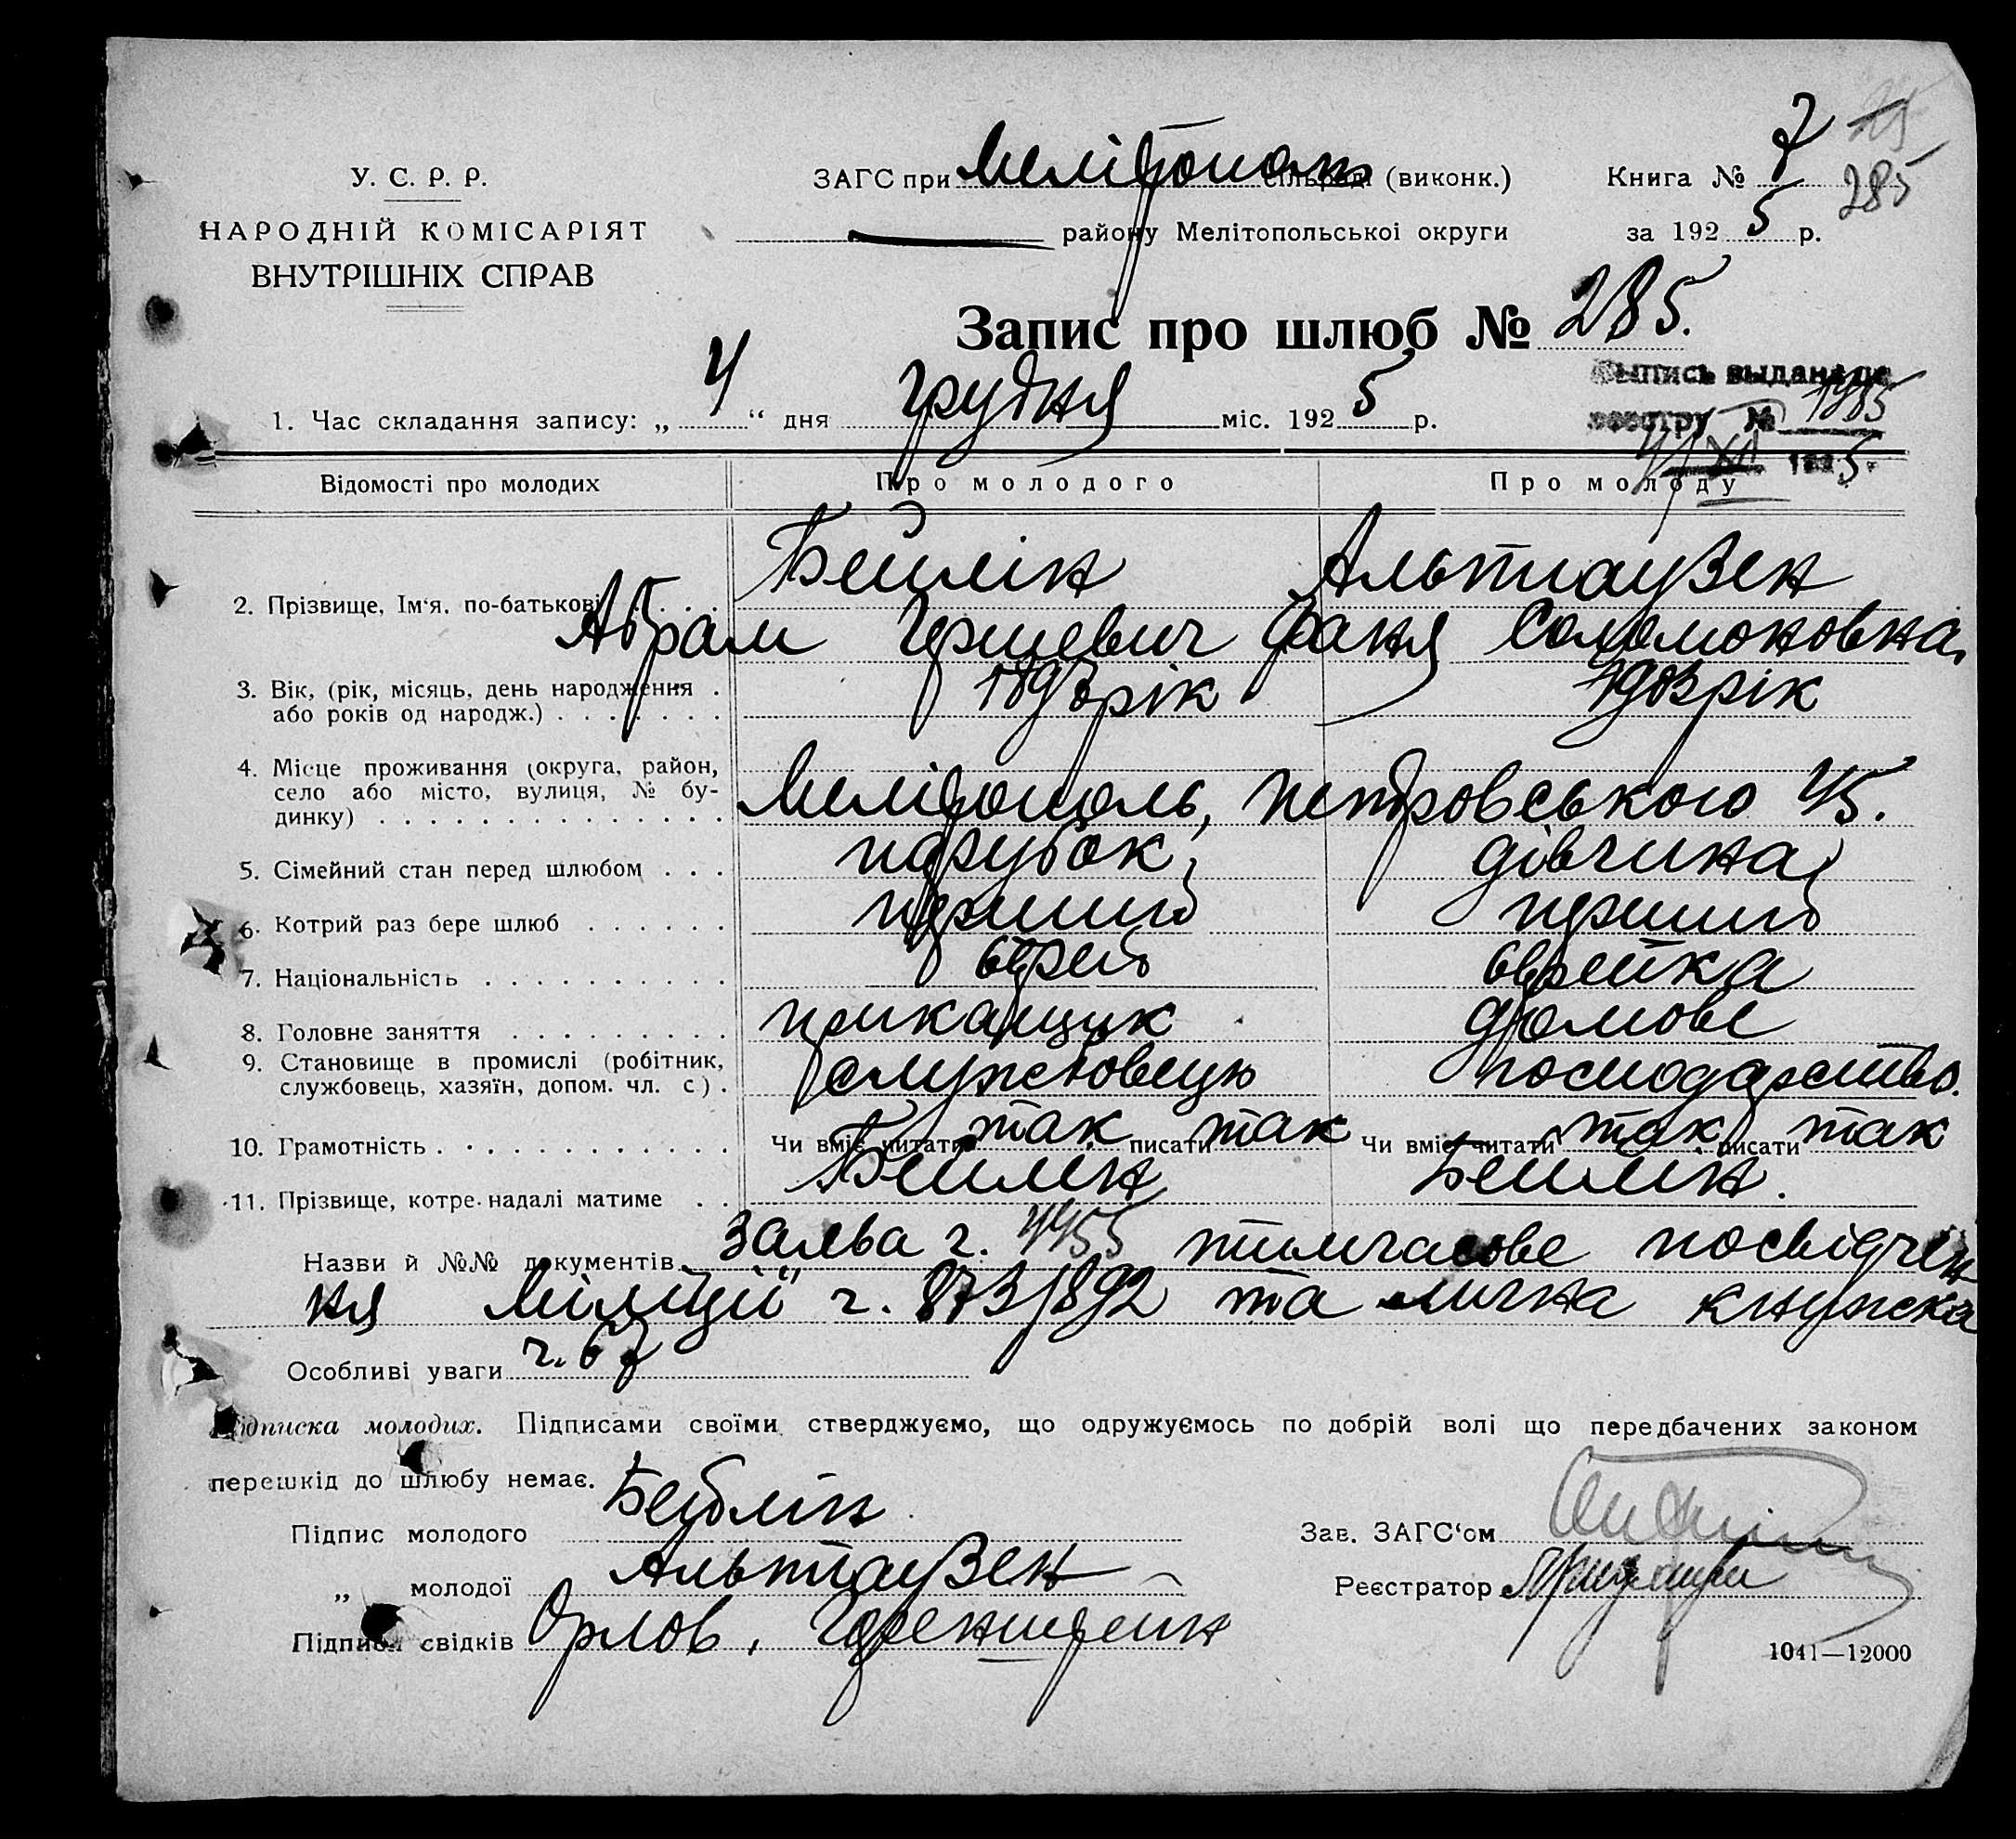 У. С. Р. Р.
НАРОДНІЙ КОМІСАРІЯТ
ВНУТРІШНІХ СПРАВ
ЗАГС при Мелітополь сільраді (виконк.)
району Мелітопольської округи
Книга № 7
285
за 1925 р.
Запис про шлюб № 285.
Выпись выдана по
реестру № 1985
4/XII 1925.
1. Час складання запису: „ 4 “ дня грудня міс. 1925 р.
Відомості про молодих Про молодого Про молоду
2. Прізвище, Ім‘я, по-батькові Бейлін Альтгаузен
Абрам Гершевич Фаня Соломоновна
3. Вік, (рік, місяць, день народження . 1897 рік 1903 рік
або років од народж.) . . . . . . .
4. Місце проживання (округа, район,
село або місто, вулиця, № бу-
динку) . . . . . . . . . . . . . . . Мелітополь, Петровського 45.
5. Сімейний стан перед шлюбом . . . парубок, дівчина
6. Котрий раз бере шлюб . . . . . . перший перший
7. Національність . . . . . . . . . . еврей еврейка
8. Головне заняття . . . . . . . . . приказщик домове
9. Становище в промислі (робітник,
службовець, хазяїн, допом. чл. с) . службовець господарство.
10. Грамотність . . . . . . . . . . . . Чи вміє читати так писати так Чи вміє читати так писати так
11. Прізвище, котре надалі матиме . . Бейлін Бейлін.
Назви й №№ документів заява ч. 4455 тимчасове посвідчен
ня Міліції ч. 873/892 та лична книжка
Особливі уваги ч. 67
Підписка молодих. Підписами своїми стверджуємо, що одружуємось по добрій волі що передбачених законом
перешкід до шлюбу немає.
Підпис молодого Бейлін
Зав. ЗАГС‘ом
„ молодої Альтгаузен
Реєстратор
Підписи свідків Орлов,
1041—12000